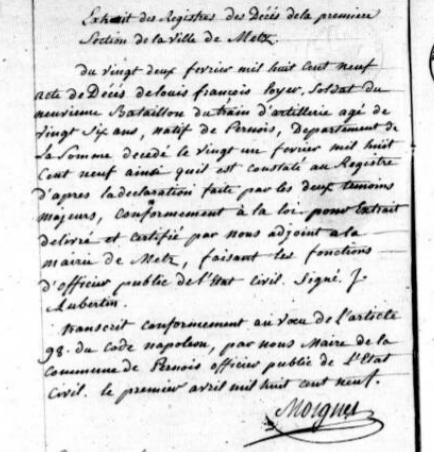 Extrait des Registres des Décès de la premiere
Section de la Ville de Metz.
du vingt deux fevrier mil huit Cent neuf
acte de Décès de louis françois loyer, Soldat du
neuvieme Bataillon du train d'artillerie agé de
vingt Six ans, natif de Pernois, Departement de
La Somme decedé le vingt une fevrier mil huit
Cent neuf ainsi quil est constaté au Registre
d'apres la declaration faite par les deux temoins
majeurs, conformement à la loi pour Extrait
delivré et certifié par nous adjoint a la
mairie de Metz, faisant les fonctions
d'officier public de l'Etat Civil. Signé. J.
Aubertin.
transcrit conformement au vœu de l'article
98. du Code napoleon, par nous Maire de la
Commune de Pernois officier public de L'Etat
Civil. le premier avril mil huit cent neuf.